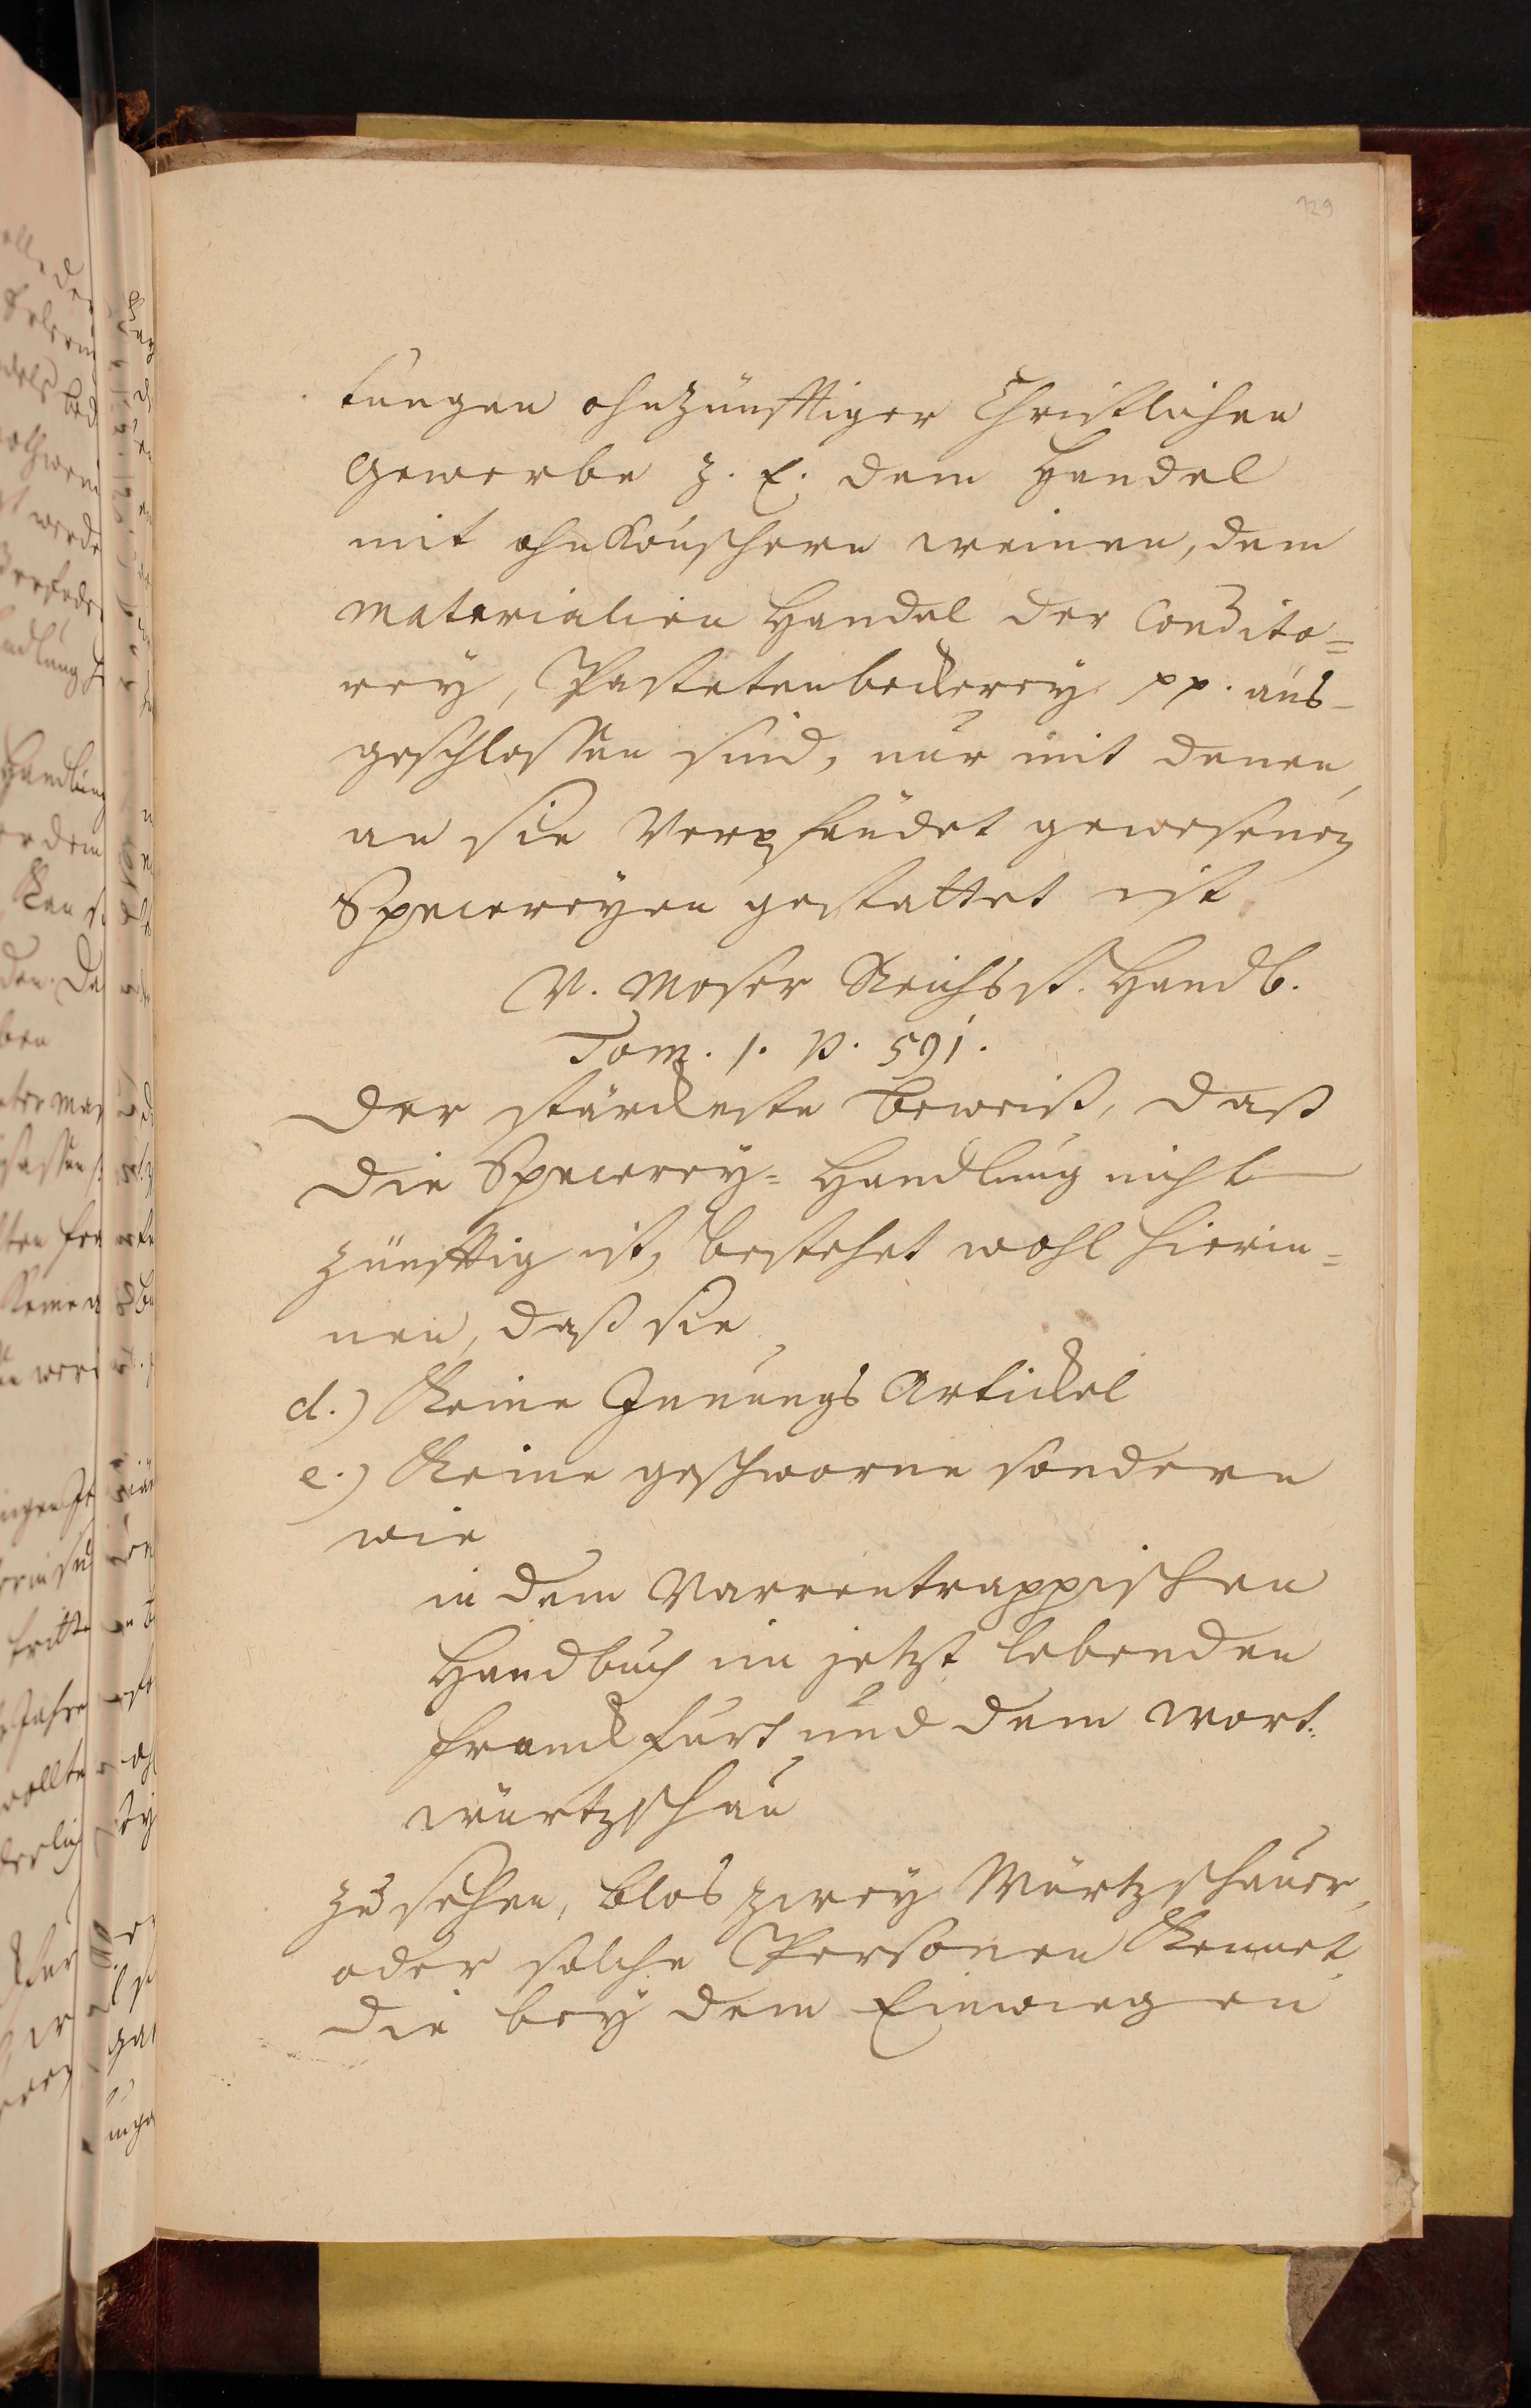 129
tungen ohnzünfftiger Christlichen
Gewerbe z. E. dem Handel
mit ohnKouschern weinen, dem
Materialien Handel der Condito=
rey, Pastetenbeckerey pp. aus-
geschlossen sind, nur mit denen,
an sie Verpfändet gewesenen
Specereyen gestattet ist
V. Moser Reichsst. Handb.
Tom. 1. p. 591.
Der stärckeste Beweiß, daß
die Specerey= Handlung nicht
zünfftig ist, bestehet wohl hierin=
nen, daß sie
d.) Keine Innungs Artickel
e.) Keine geschworne sondern
wie
in dem Varrentrappischen
Handbuch im jetzt lebenden
Franckfurt und dem Wort:
würtzschau
zu sehen, blos zwey Würtzschauer,
oder solche Personen Kennet
die bey dem Einwiegen